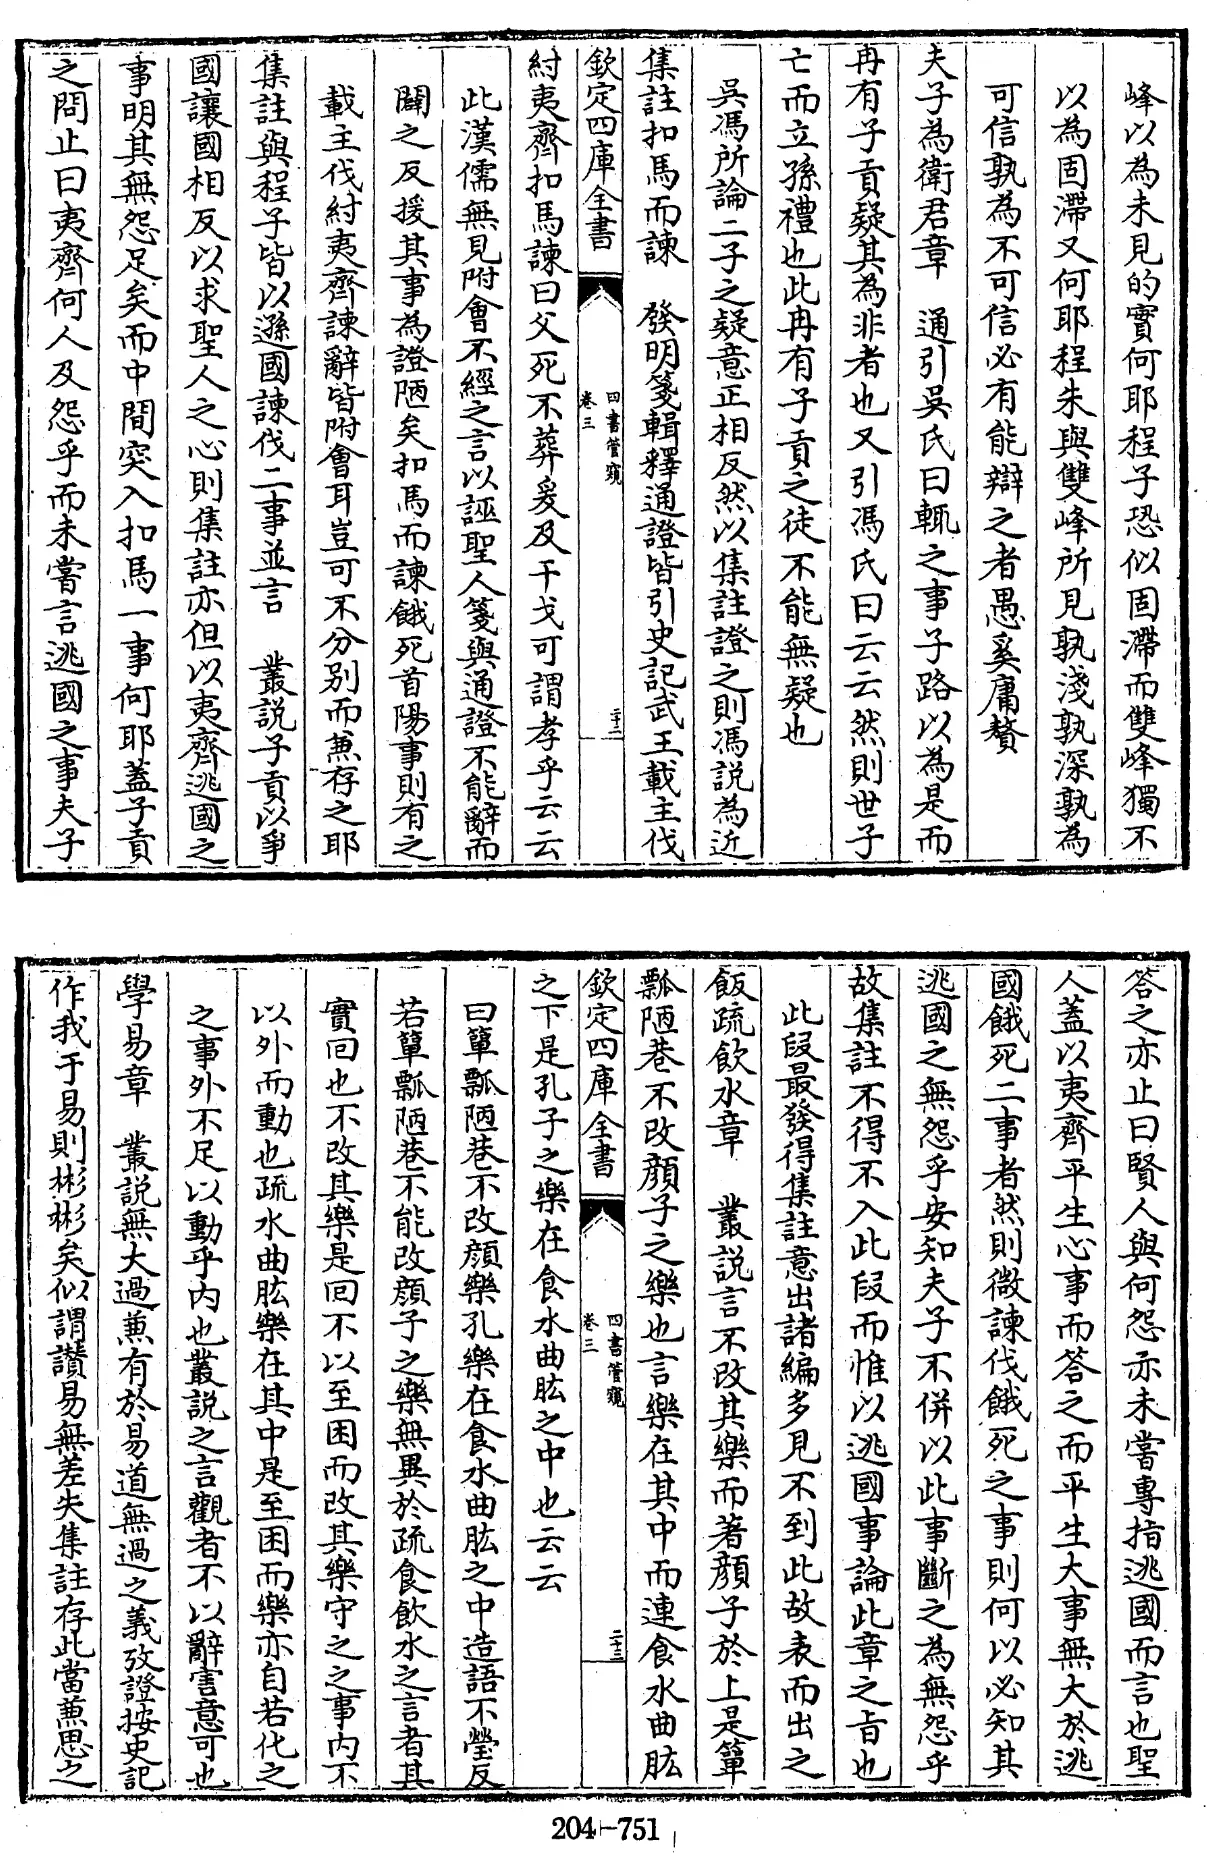 峰以為未見的實何耶程子恐似固滯而雙峰獨不
以為固滯又何耶程朱與雙峰所見孰淺孰深孰為
可信孰為不可信必有能辯之者愚奚庸贅
夫子為衛君章　通引吳氏曰輒之事子路以為是而
冉有子貢疑其為非者也又引馮氏曰云云然則世子
亡而立孫禮也此冉有子貢之徒不能無疑也
吳馮所論二子之疑意正相反然以集註證之則馮説為近
集註扣馬而諫　發明箋輯釋通證皆引史記武王載主伐
欽定四庫全書
四書管窺
卷三
二十二
紂夷齊扣馬諫曰父死不葬爰及干戈可謂孝乎云云
此漢儒無見附會不經之言以誣聖人箋與通證不能辭而
闢之反援其事為證陋矣扣馬而諫餓死首陽事則有之
載主伐紂夷齊諫辭皆附會耳豈可不分别而兼存之耶
集註與程子皆以遜國諫伐二事並言　叢説子貢以爭
國讓國相反以求聖人之心則集註亦但以夷齊逃國之
事明其無怨足矣而中間突入扣馬一事何耶蓋子貢
之問止曰夷齊何人及怨乎而未嘗言逃國之事夫子
答之亦止曰賢人與何怨亦未嘗專指逃國而言也聖
人蓋以夷齊平生心事而答之而平生大事無大於逃
國餓死二事者然則微諫伐餓死之事則何以必知其
逃國之無怨乎安知夫子不併以此事斷之為無怨乎
故集註不得不入此段而惟以逃國事論此章之旨也
此段最發得集註意出諸編多見不到此故表而出之
飯疏飲水章　叢説言不改其樂而著顔子於上是簞
瓢陋巷不改顔子之樂也言樂在其中而連食水曲肱
欽定四庫全書
四書管窺
卷三
二十三
之下是孔子之樂在食水曲肱之中也云云
曰簞瓢陋巷不改顔樂孔樂在食水曲肱之中造語不瑩反
若簞瓢陋巷不能改顔子之樂無異於疏食飲水之言者其
實回也不改其樂是回不以至困而改其樂守之之事内不
以外而動也疏水曲肱樂在其中是至困而樂亦自若化之
之事外不足以動乎内也叢説之言觀者不以辭害意可也
學易章　叢説無大過兼有於易道無過之義攷證按史記
作我于易則彬彬矣似謂讚易無差失集註存此當兼思之
204-751